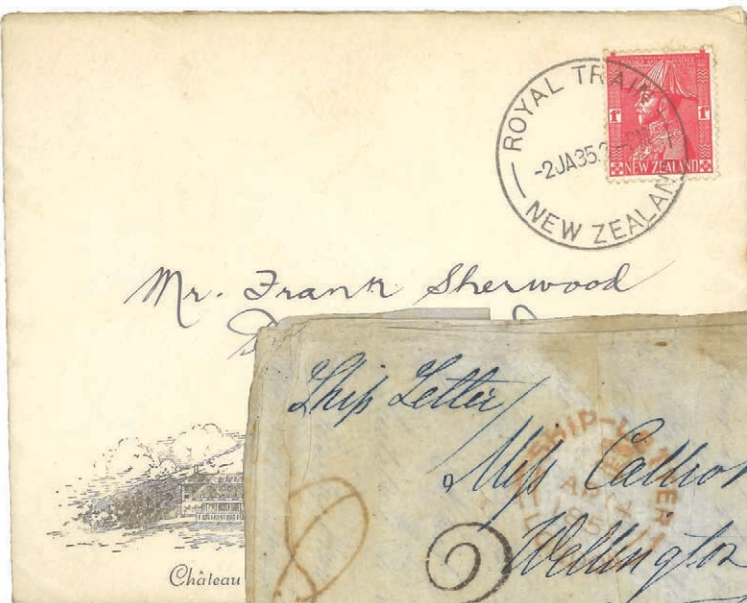 ROYAL TRAIN
-2JA35
NEW ZEALAN
1 1
NEW ZEALAND
Mr. Frank Sherwood
Château
Ship Letter
SHIP-LETTER
Miss
AP
Wellington